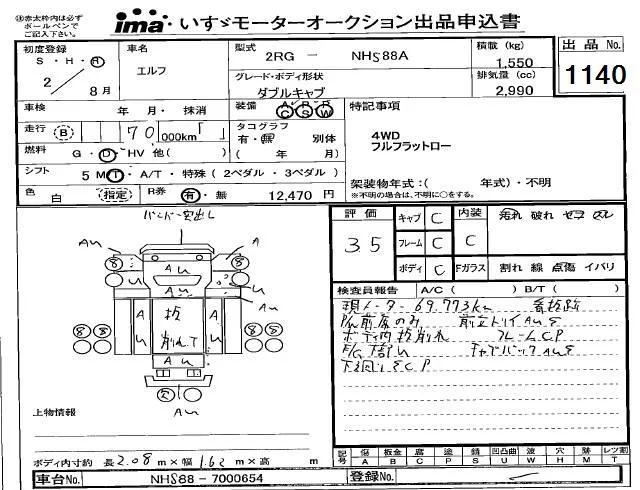 ※赤太枠内は必ず
ボールペンで
ご記入下さい。
ima いすゞモーターオークション出品申込書
初度登録
S・H・R
2/8月
車名
エルフ
型式 2RG － NHS88A
グレード・ボディ形状
ダブルキャブ
積載 (kg)
1,550
排気量 (cc)
2,990
出品 No.
1140
車検 年 月・抹消
装備 A P P C S W
特記事項
走行 B 70 000km「 」
タコグラフ
有・無 別体
( 年 月)
4WD
フルフラットロー
燃料 G・D・HV 他( )
シフト 5 MT・A/T・特殊 (2ペダル・3ペダル)
架装物年式：( 年式)・不明
※不明の場合は、不明に○をする。
色 白 指定 R券 有・無 12,470 円
バンパー突出し
Au A
8 Au 8
8 8
Au
A U 板 削れて A U
Au
Au
評価
35
キャブ C
フレーム C
ボディ C
内装
C
Fガラス
汚れ 破れ セコ スレ
割れ 線 点傷 イバリ
検査員報告 A/C ( ) B/T ( )
現メーター 69,773km 看板跡
P/W前席のみ
フレームCP
上物情報
ボディ内寸約 長 2.08 m×幅 1.62 m×高 m
記号 傷 A 板金 B 腐 C 塗 P 錆 S 凹凸曲 U 波 W 穴 H 跡 M レツ割 T
車台No. NHS88-7000654
登録No.